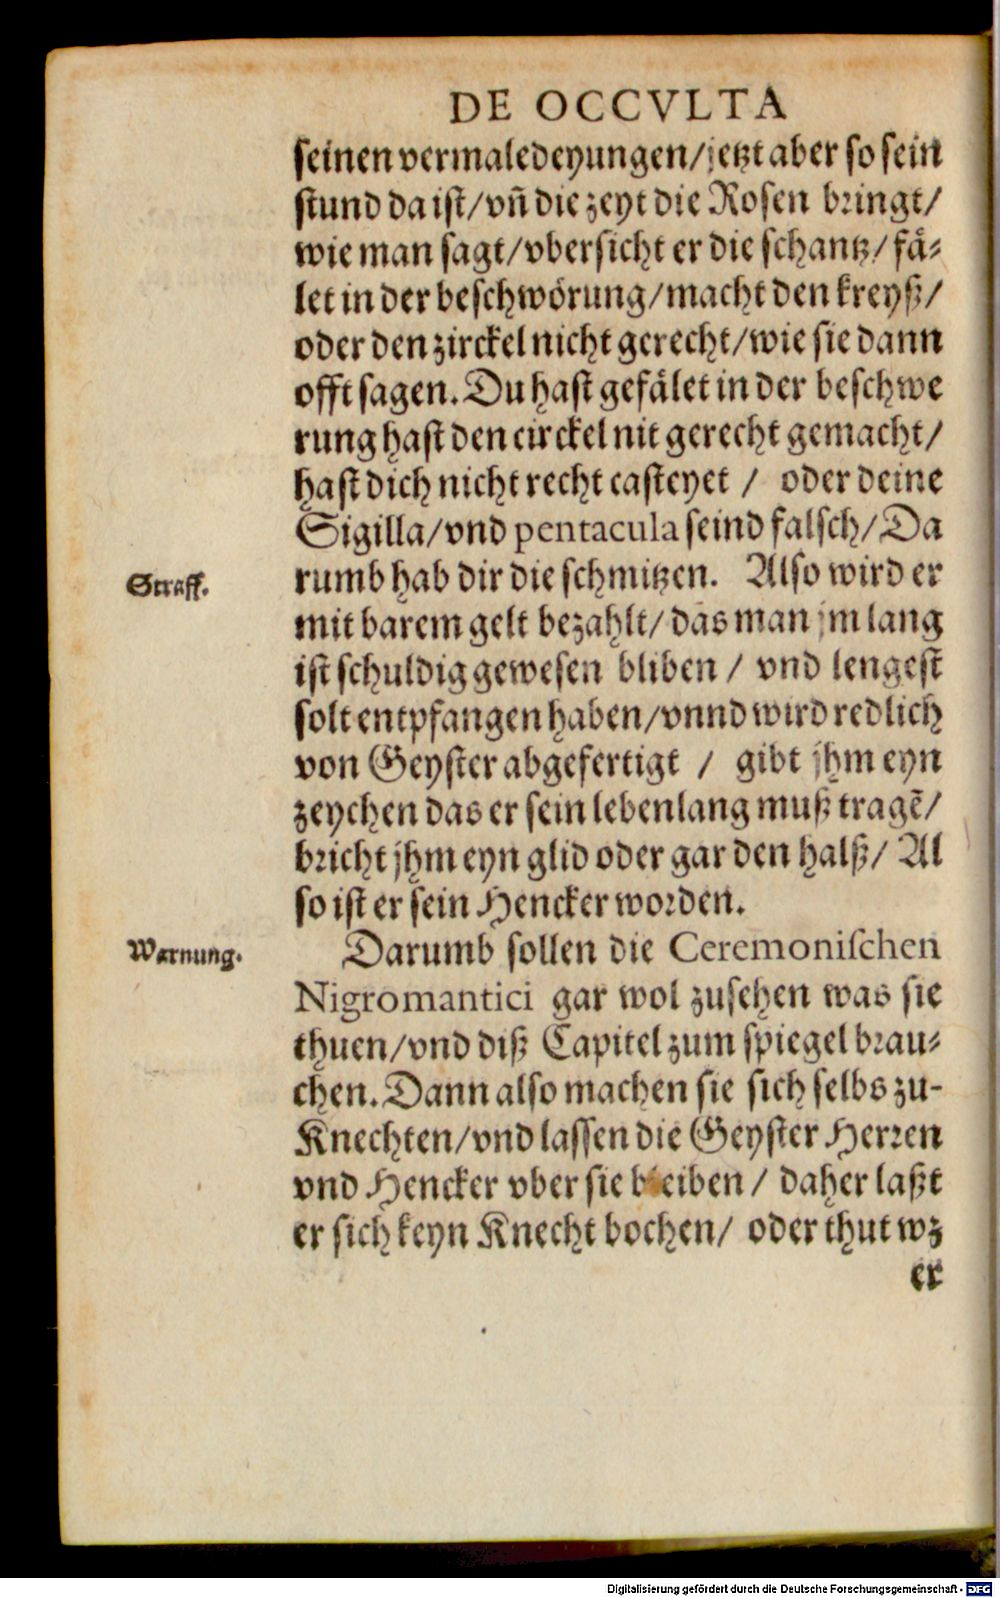 DE OCCVLTA
seinen vermaledeyungen/jetzt aber so sein
stund da ist/vn̄ die zeyt die Rosen bringt/
wie man sagt/vbersicht er die schantz/faͤ-
let in der beschwoͤrung/macht den kreyß/
oder den zirckel nicht gerecht/wie sie dann
offt sagen. Du hast gefaͤlet in der beschwe
rung hast den circkel nit gerecht gemacht/
hast dich nicht recht casteyet / oder deine
Sigilla/vnd pentacula seind falsch/Da
Straff.
rumb hab dir die schmitzen. Also wird er
mit barem gelt bezahlt/das man jm lang
ist schuldig gewesen bliben / vnd lengest
solt entpfangen haben/vnnd wird redlich
von Geyster abgefertigt / gibt jhm eyn
zeychen das er sein lebenlang muß tragē/
bricht jhm eyn glid oder gar den halß/ Al
so ist er sein Hencker worden.
Warnung.
Darumb sollen die Ceremonischen
Nigromantici gar wol zusehen was sie
thuen/vnd diß Capitel zum spiegel brau-
chen. Dann also machen sie sich selbs zu-
Knechten/vnd lassen die Geyster Herren
vnd Hencker vber sie bleiben/ daher laßt
er sich keyn Knecht bochen/ oder thut wz
er
Digitalisierung gefördert durch die Deutsche Forschungsgemeinschaft - DFG